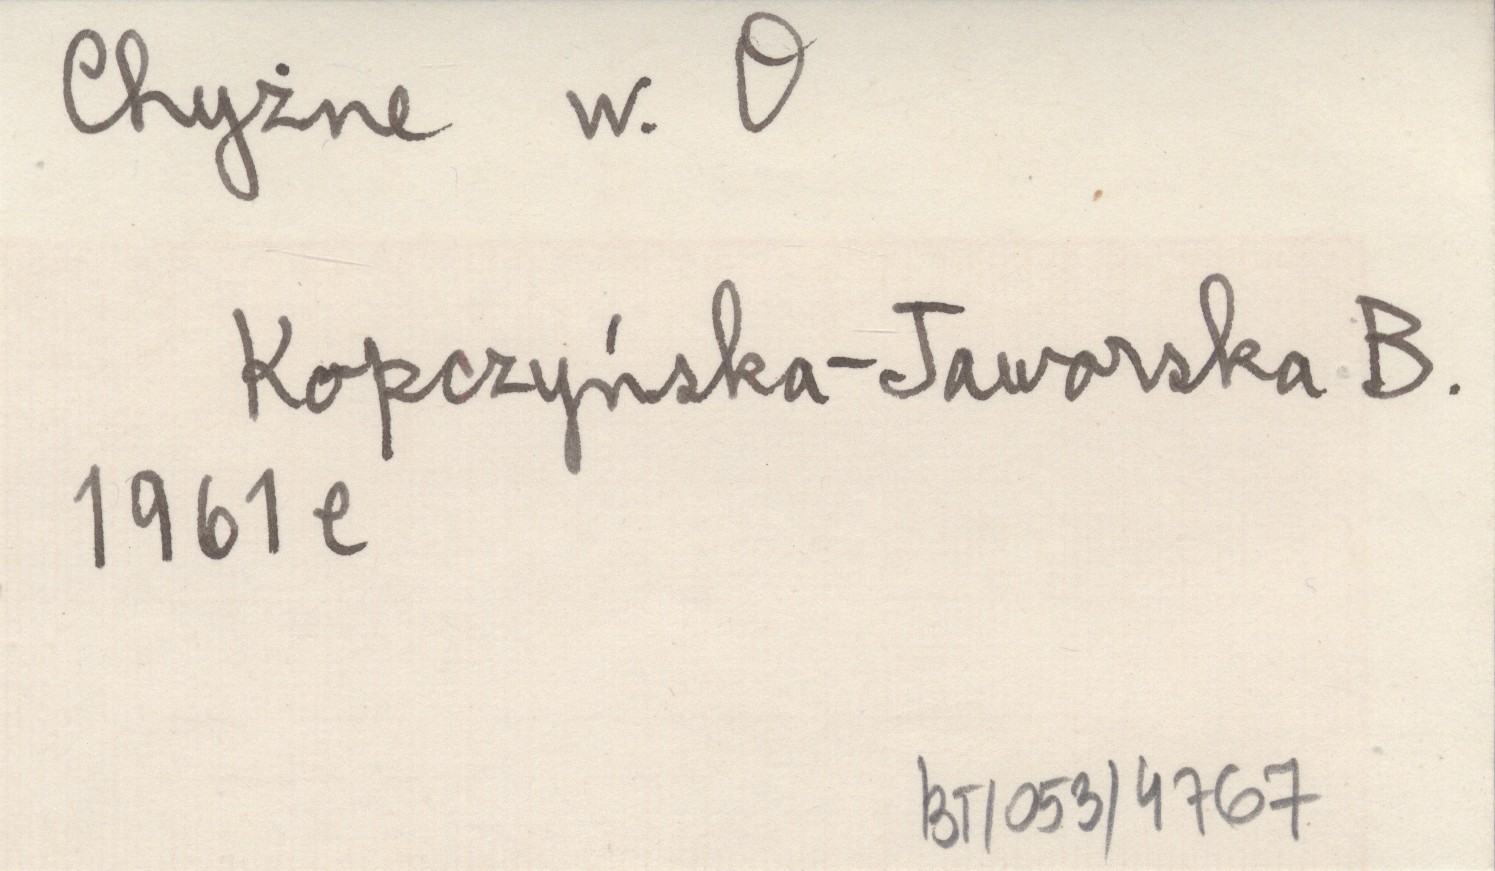 Chyżne w. O
Kopczyńska-Jaworska B.
1961 e
BT/053/4767